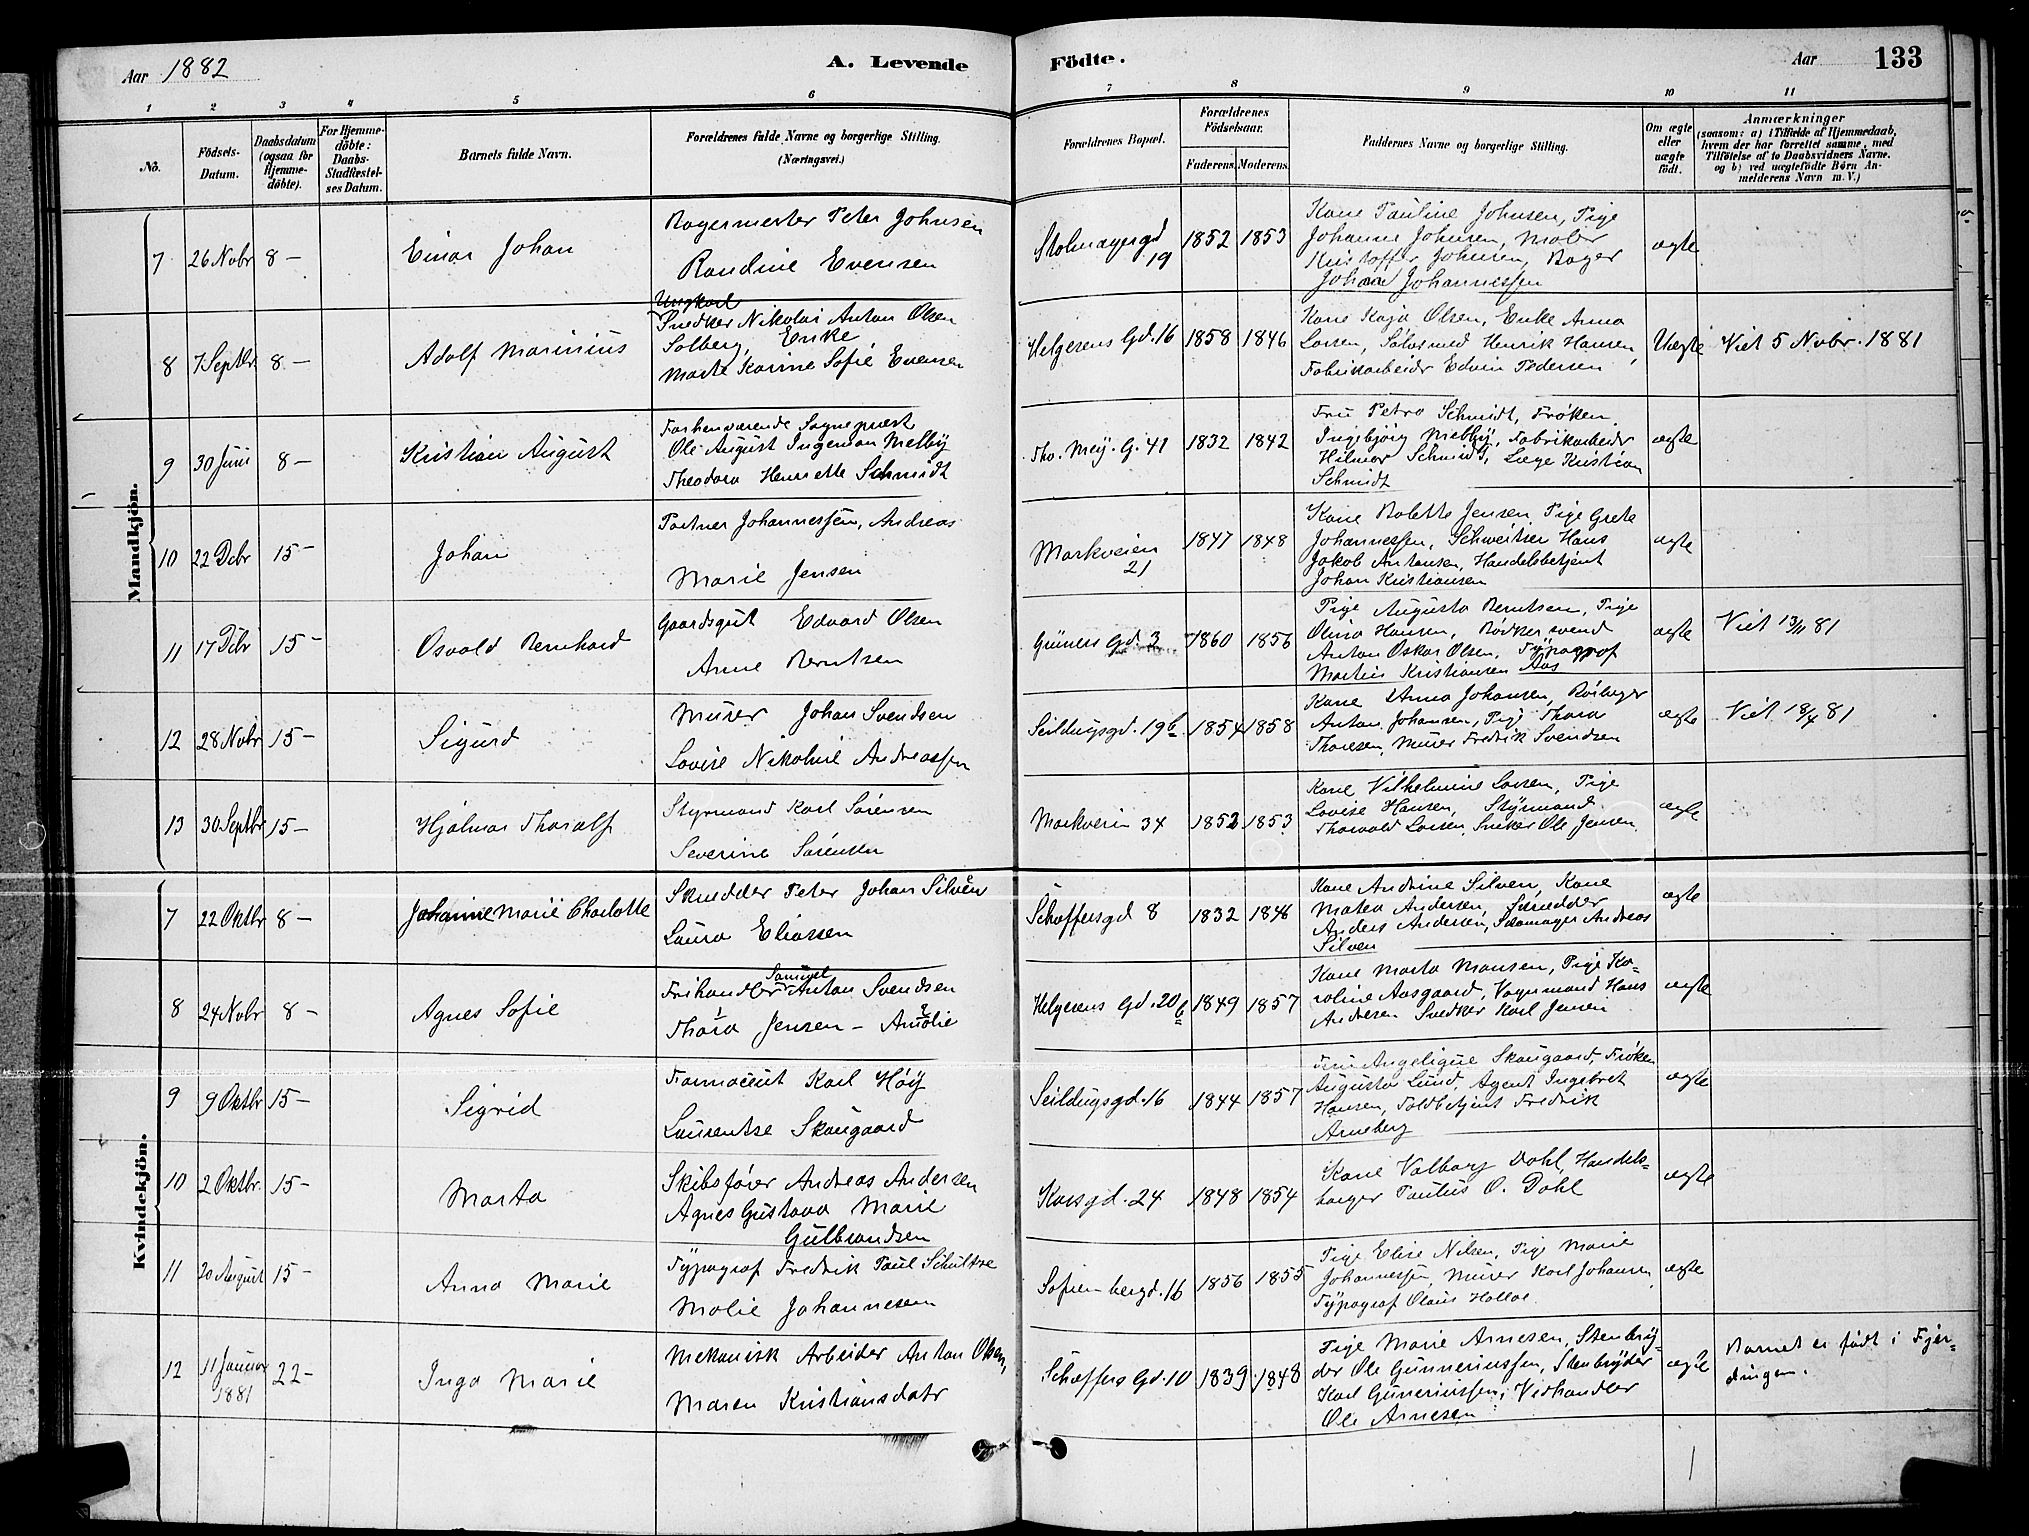 Aar 1882
A. Levende
Födte.
Aar
133
1 2 3 4 5 6 7 8 9 10 11
No.
Födsels-
Datum.
Daabsdatum
(ogsaa for
Hjemme-
döbte).
For Hjemme-
döbte:
Daabs-
Stadfæstel-
ses Datum.
Barnets fulde Navn.
Forældrenes fulde Navne og borgerlige Stilling.
(Næringsvei.)
Forældrenes Bopæl.
Forældrenes
Födselsaar.
Faderens. Moderens.
Faddernes Navne og borgerlige Stilling.
Om ægte
eller
uægte
födt.
Anmærkninger
(saasom: a) i Tilfælde af Hjemmedaab,
hvem der har forrettet samme, med
Tilföielse af to Daabsvidners Navne.
og b) ved uægtefödte Börn An-
melderens Navn m. V.)
Mandkjön.
7
26 Nobr
8 –
Einar Johan
Bagermester Peter Johnsen
Randine Evensen
Stolmagergd
19
1852
1853
Kone Pauline Johnsen, Pige
Johanne Johnsen, Maler
Kristoffer Johnsen, Bager
Johan Johannessen
ægte
8
7 Septbr
8 –
Adolf Marinius
Ungkarl
Snedker Nikolai Anton Olsen
Solberg, Enke
Marte Karine Sofie Evensen
Helgesens Gd. 16
1858
1846
Kone Kaja Olsen, Enke Anna
Larsen, Sølvsmed Henrik Hansen,
Fabrikarbeider Edvin Pedersen
Uægte
Viet 5 Nobr. 1881
9
30 Juni
8 –
Kristian August
Forhenværende Sogneprest
Ole August Ingeman Melby
Theodora Henriette Schmidt
Tho. Mey. G. 41
1832
1842
Fru Petra Schmidt, Frøken
Ingebjørg Melby, Fabrikarbeider
Hilmar Schmidt, Læge Kristian
Schmidt
ægte
10
22 Debr
15 –
Johan
Portner Johannessen, Andreas
Marie Jensen
Markveien
21
1847
1848
Kone Bolette Jensen, Pige Grete
Johannessen, Schweitser Hans
Jakob Antonsen, Handelsbetjent
Johan Kristiansen
ægte
11
17 Debr
15 –
Osvald Bernhard
Gaardsgut Edvard Olsen
Anne Berntsen
Grüners Gd. 3
1860
1856
Pige Augusta Berntsen, Pige
Olina Hansen, Bødkersvend
Anton Oskar Olsen, Typograf
Martin Kristiansen Aas
ægte
Viet 13/11 81
12
28 Nobr
15 –
Sigurd
Murer Johan Svendsen
Lovise Nikoline Andreassen
Seildugsgd. 19 b.
1854
1858
Kone Anna Johansen,
Anton Johansen, Pige Thora
Thoresen, Murer Fredrik Svendsen
ægte
Viet 18/4 81
13
30 Septbr
15 –
Hjalmar Thoralf
Styrmand Karl Sørensen
Severine Sørensen
Markveien 34
1852
1853
Kone Vilhelmine Larsen, Pige
Lovise Hansen, Styrmand
Thorvald Larsen, Snekker Ole Jensen.
ægte
Kvindekjön.
7
22 Oktbr
8 –
Johanne Marie Charlotte
Skrædder Peter Johan Silvén
Laura Eliassen
Schaffersgd 8
1832
1846
Kone Andrine Silven, Kone
Matea Andersen, Skrædder
Anders Andersen, Skomager Andreas
Silven
ægte
8
24 Nobr
8 –
Agnes Sofie
Samuel
Frihandler Anton Svendsen
Thora Jensen – Amalie
Helgesens Gd. 20 b
1849
1857
Kone Marta Monsen, Pige Ka-
roline Aasgaard, Vognmand Hans
Andresen Snedker Karl Jensen
ægte
9
9 Oktbr
15 –
Sigrid
Farmaceut Karl Høÿ
Laurentse Skaugaard
Seildugsgd. 16
1844
1857
Fru Angelique Skaugaard, Frøken
Augusta Lund, Agent Ingebret
Hansen, Toldbetjent Fredrik
Arneberg
ægte
10
2 Oktbr.
15 –
Marta
Skibsfører Andreas Andersen
Agnes Gustava Marie
Gulbrandsen
Korsgd. 24
1848
1854
Kone Valborg Dahl, Handels-
borger Paulus O. Dahl
ægte
11
20 August
15 –
Anna Marie
Typograf Fredrik Paul Schultze
Malie Johannesen
Sofienbergd. 16
1856
1855
Pige Elise Nilsen, Pige Marie
Johannessen, Murer Karl Johansen,
Typograf Olaus Holloe.
ægte
12
11 Januar
1881
22 –
Inga Marie
Mekanisk Arbeider Anton Olsen,
Maren Kristiansdatr
Schaffers Gd. 10
1839
1848
Pige Marie Arnesen, Stenbry-
der Ole Gunneriussen, Stenbryder
Karl Guneriussen, Vedhandler
Ole Arnesen
ægte
Barnet er født i Fjer-
dingen.